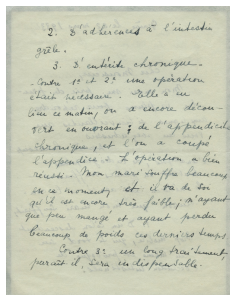 2. D'adhérences à l'intestin
grêle.
3. D'entérite chronique.
Contre 1° et 2° une opération
était nécessaire. Elle a eu
lieu ce matin, on a encore décou-
vert en ouvrant ; de l'appendicite
chronique, et l'on a coupé
l'appendice. L'opération a bien
réussi. Mon mari souffre beaucoup
en ce moment, et il va de soi
qu'il est encore très faible ; n'ayant
que peu mangé et ayant perdu
beaucoup de poids ces derniers temps.
Contre 3° un long traitement
paraît il, sera indispensable.